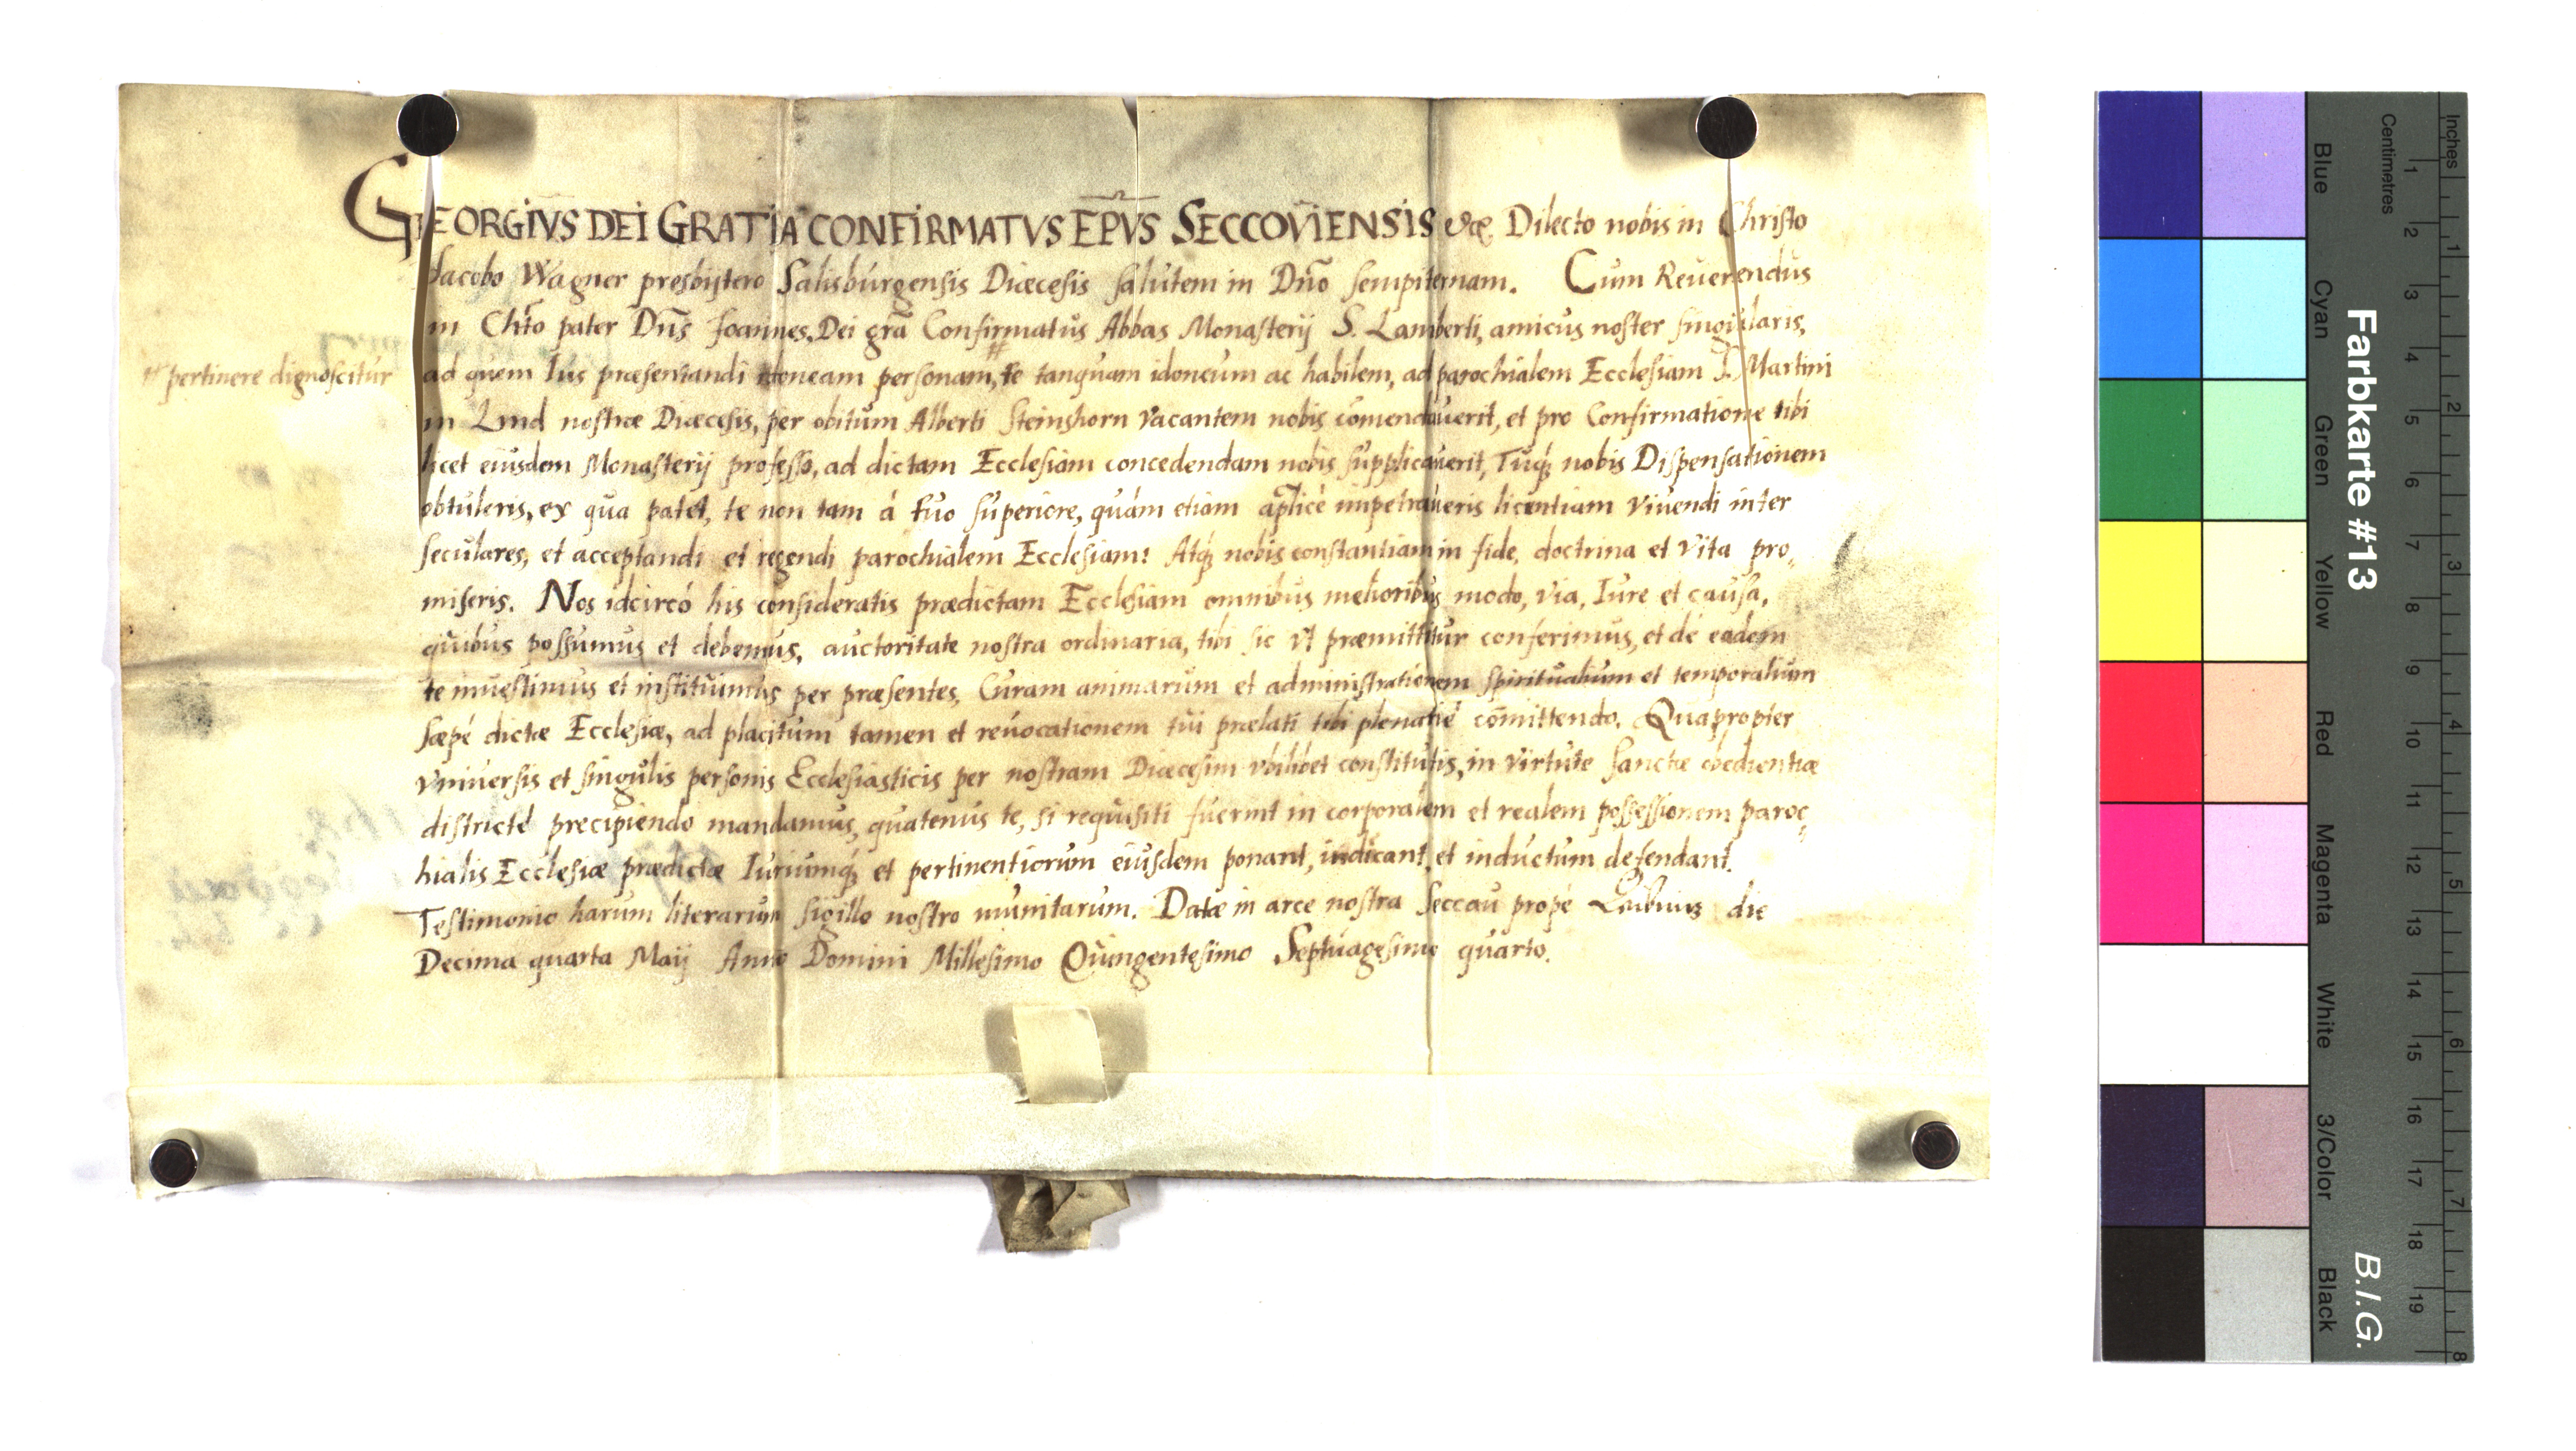 GEORGIVS DEI GRATIA CONFIRMATVS EPVS SECCOVIENSIS &c. Dilecto nobis in Christo
Jacobo Wagner presbijtero Salisburgensis Diœcesis salutem in Dño sempiternam. Cum Reuerendus
in Chřo pater Dñs Joannes, Dei gřa Confirmatus Abbas Monasterij S. Lamberti, amicus noster singularis,
ad quem Ius præsentandi idoneam personam, # te tanquam idoneum ac habilem, ad parochialem Ecclesiam S. Martini
# pertinere dignoscitur
in Lind nostræ Diœcesis, per obitum Alberti Steinshorn vacantem nobis cõmendauerit, et pro Confirmatione tibi
licet eiusdem Monasterij professo, ad dictam Ecclesiam concedendam nobis supplicauerit, Tuq́; nobis Dispensationem
obtuleris, ex qua patet, te non tam á tuo superiore, quám etiam aplicè impetraueris licentiam viuendi inter
seculares, et acceptandi et regendi parochialem Ecclesiam: Atq́; nobis constantiam in fide, doctrina et vita pro„
miseris. Nos idcircó his consideratis prædictam Ecclesiam omnibus melioribus modo, via, Iure et causa,
quibus possumus et debemus, auctoritate nostra ordinaria, tibi sic vt præmittitur conferimus, et dé eadem
te inuestimus et instituimus per præsentes, Curam animarum et administrationem spiritualium et temporalium
sæpé dictæ Ecclesiæ, ad placitum tamen et reuocationem tui prælati tibi plenarié cõmittendo. Quapropter
vniuersis et singulis personis Ecclesiasticis per nostram Diœcesim vbilibet constitutis, in virtute sanctæ obedientiæ
districté precipiendo mandamus, quatenus te, si requisiti fuerint in corporalem et realem possessionem paroc„
hialis Ecclesiæ prædictæ Iuriumq́; et pertinentiarum eiusdem ponant, indicant, et inductum defendant.
Testimonio harum literarum sigillo nostro munitarum. Datæ in arce nostra Seccau propé Leibniz die
Decima quarta Maij Anno Domini Millesimo Quingentesimo Septuagesimo quarto.
Farbkarte #13
B.I.G.
Centimetres
Inches
Blue
Cyan
Green
Yellow
Red
Magenta
White
3/Color
Black
1 2 3 4 5 6 7 8 9 10 11 12 13 14 15 16 17 18 19
1 2 3 4 5 6 7 8